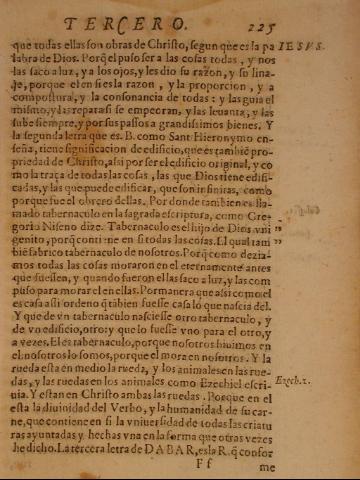 TERCERO. 225
que todas ellas son obras de Christo, segun que es la pa IESVS.
labra de Dios. Porq̃ el puso ser a las cosas todas, y nos
las saco a luz, y a los ojos, y les dio su razon, y su lina-
je, porque el en si es la razon, y la proporcion, y a
compostura, y la consonancia de todas: y las guia el
mismo, y las repara si se empeoran, y las leuanta; y las
sube siempre, y por sus passos a grandissimos bienes. Y
la segunda letra que es. B. como Sant Hieronymo en-
seña, tiene significacion de edificio, que es tãbiẽ pro-
priedad de Christo, asi por ser el edificio original, y co
mo la traça de todas las cosas, las que Dios tiene edifi-
cadas, y las que puede edificar, que son infinitas, como
porque fue el obrero dellas. Por donde tambien es lla-
mado tabernaculo en la sagrada escriptura, como Gre
gorio Niseno dize. Tabernaculo es el hijo de Dios vni "
genito, porq̃ contiene en si todas las cosas. El qual tam "
biẽ fabrico tabernaculo de nosotros. Porq̃ como dezia-
mos todas las cosas moraron en el eternamente antes
que fuessen, y quando fueron el las saco a luz, y las com
puso para morar el en ellas. Por manera que assi como el
es casa assi ordeno q̃ tãbien fuesse casa lo que nascia del.
Y que de vn tabernaculo nasciesse otro tabernaculo, y
de vn edificio, otro; y que lo fuesse vno para el otro, y
a vezes. El es tabernaculo, porque nosotros biuimos en
el. nosotros lo somos, porque el mora en nosotros. Y la
rueda esta en medio la rueda, y los animales en las rue-
das, y las ruedas en los animales como Ezechiel escri- Ezech. 1.
uia. Y estan en Christo ambas las ruedas. Porque en el
esta la diuinidad del Verbo, y la humanidad de su car-
ne, que contiene en si la vniuersidad de todas las criatu
ras ayuntadas y hechas vna en la forma que otras vezes
he dicho. La tercera letra de DABAR, es la R. q̃ confor
Ff me